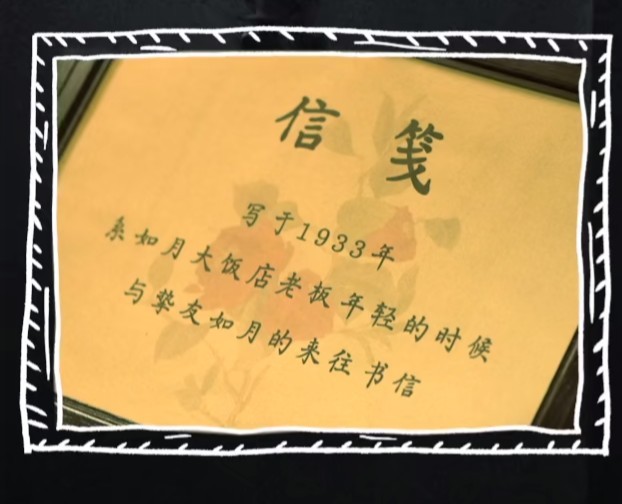 信笺
写于1933年
系如月大饭店老板年轻的时候
与挚友如月的来往书信